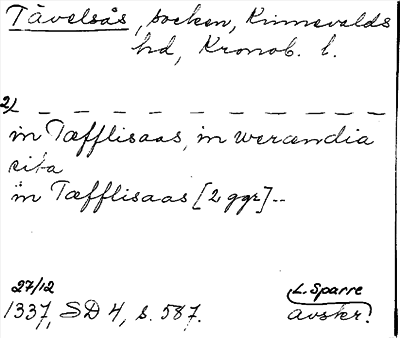 Tävelsås, socken, Kinnevalds
hd, Kronob. l.
2) _ _ _ _ _ _ _ _ _ _ _
in Tæfflisaas, in werændia
sita
in Tæfflisaas [2 ggr] --
27/12 L. Sparre
1337, SD 4, s. 587. avskr.